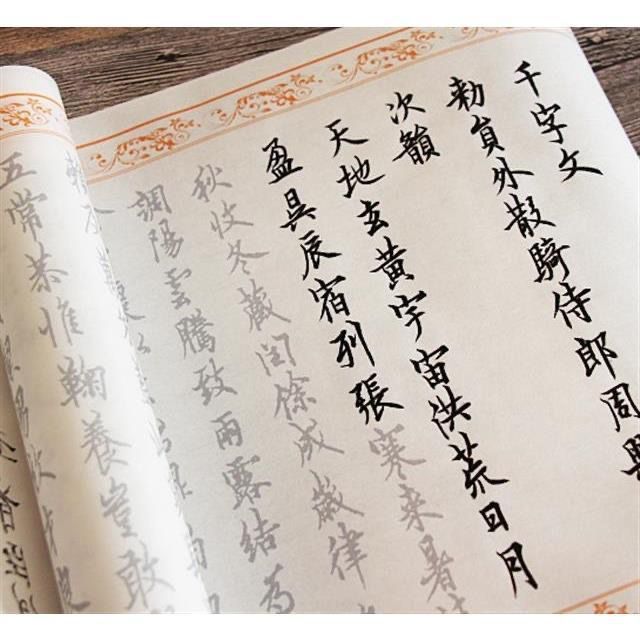 千字文
勅員外散騎侍郎周
次韻
天地玄黃宇宙洪荒日月
盈昃辰宿列張寒来暑
秋收冬藏閏餘成歲律
調陽雲騰致雨露結為
五常恭惟鞠養豈敢